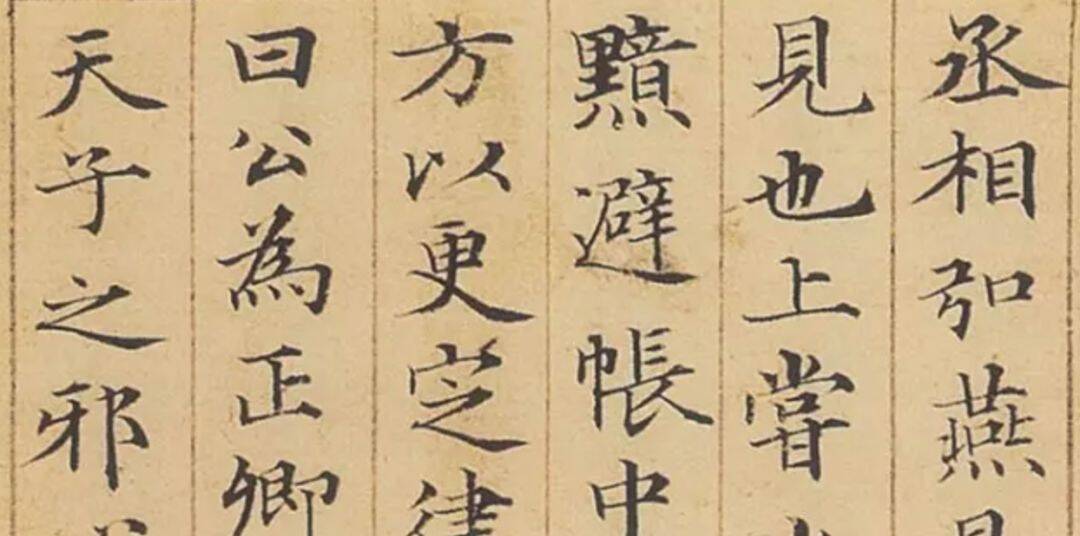 丞相弘燕
見也上嘗
黯避帳中
方以更定律
曰公為正卿
天子之邪